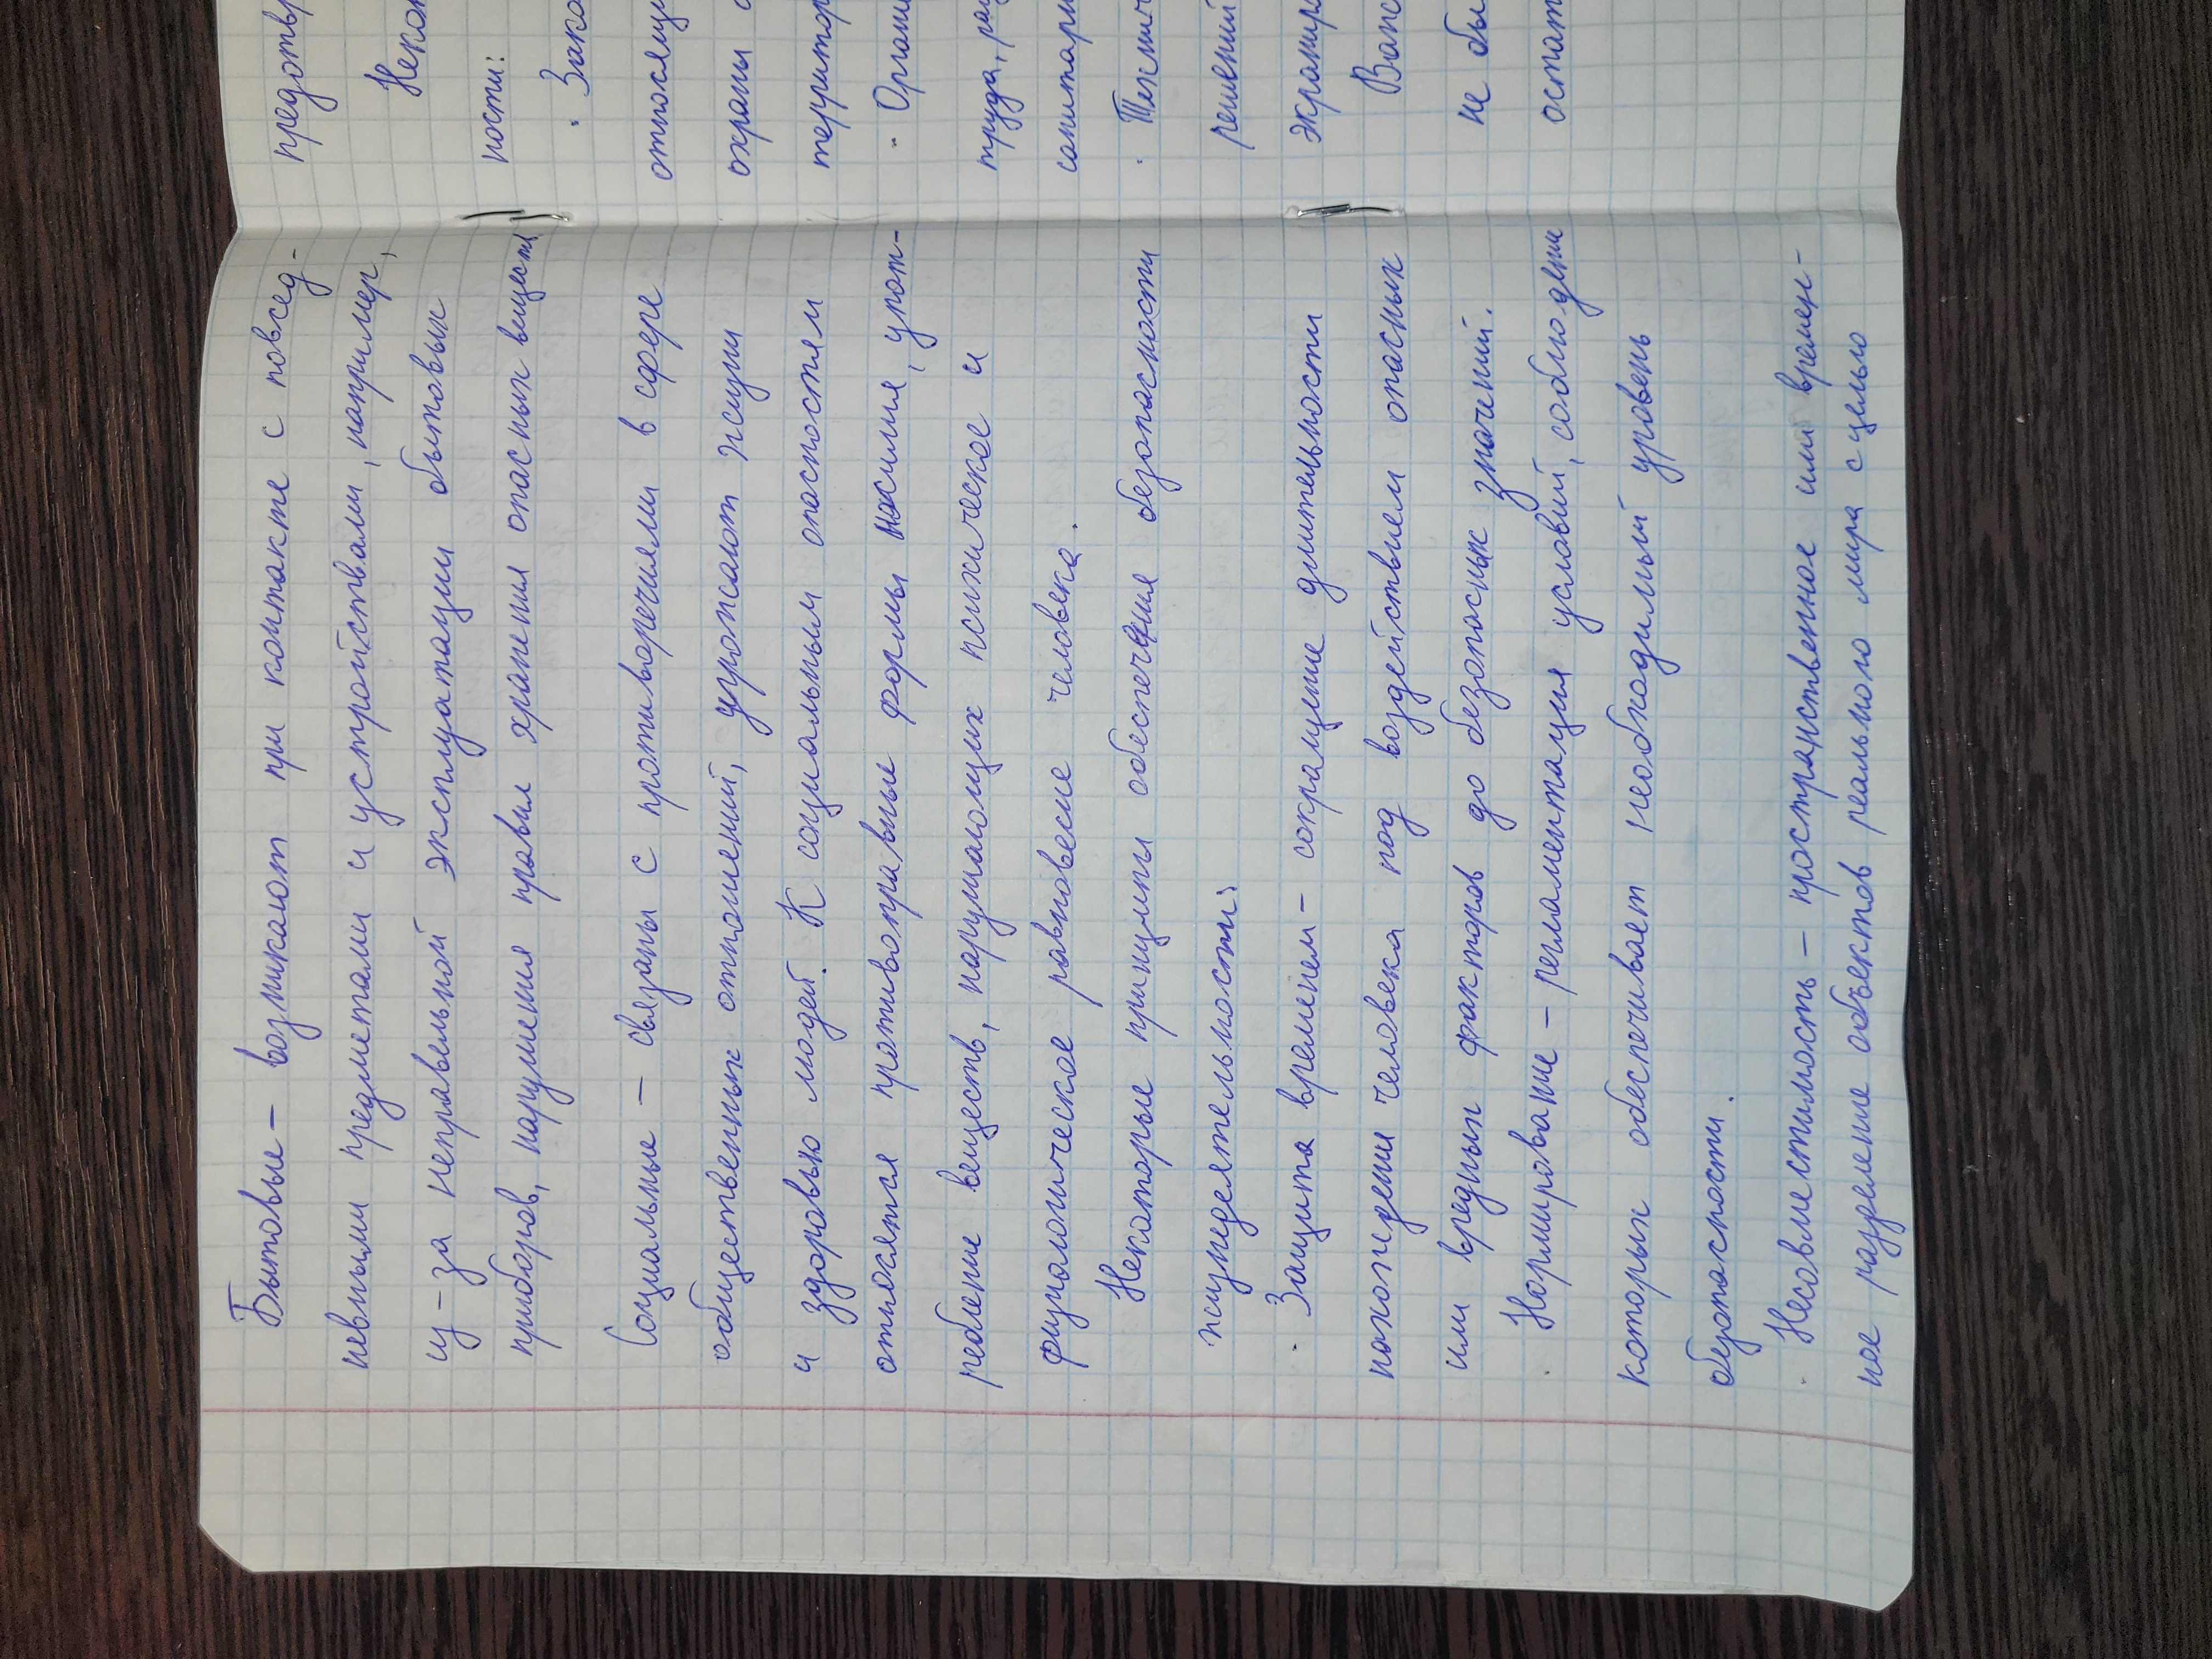 Бытовые – возникают при контакте с повсед-
невными предметами и устройствами, например,
из-за неправельной эксплуатации бытовых
приборов, нарушения правил хранения опасных веществ
Социальные – связаны с противоречиями в сфере
общественных отношений, угрожают жизни
и здоровью людей. К социальным опасностям
относятся противоправные формы насилия, упот-
ребление веществ, нарушающих психическое и
физиологическое равновесие человека.
Некоторые принципы обеспечения безопасности
жизнедеятельности:
· Защита временем – сокращение длительности
нахождения человека под воздействием опасных
или вредных факторов до безопасных значений.
· Нормирование – регламентация условий, соблюдение
которых обеспечивает необходимый уровень
безопасности.
· Несовместимость – пространственное или времен-
ное разделение объектов реального мира с целью
предотвр
Некот
ности:
· Зако
относящи
охраны
территор
· Органи
труда, ра
санитарн
· Технич
решений
экранир
Важ
не бы
остат